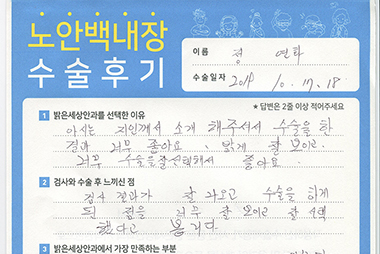 노안백내장
수술후기
이름 정 연화
수술일자 2019 10. 17. 18.
★ 답변은 2줄 이상 적어주세요
1 밝은세상안과를 선택한 이유
아시는 지인께서 소개 해주셔서 수술을 한
결과 너무 좋아요. 밝게 잘 보이고.
너무 수술을 잘 선택해서 좋아요.
2 검사와 수술 후 느끼신 점
검사 결과가 잘 나오고 수술을 하게
된 점을 너무 잘 보이고 잘 선택
했다고 봅니다.
3 밝은세상안과에서 가장 만족하는 부분